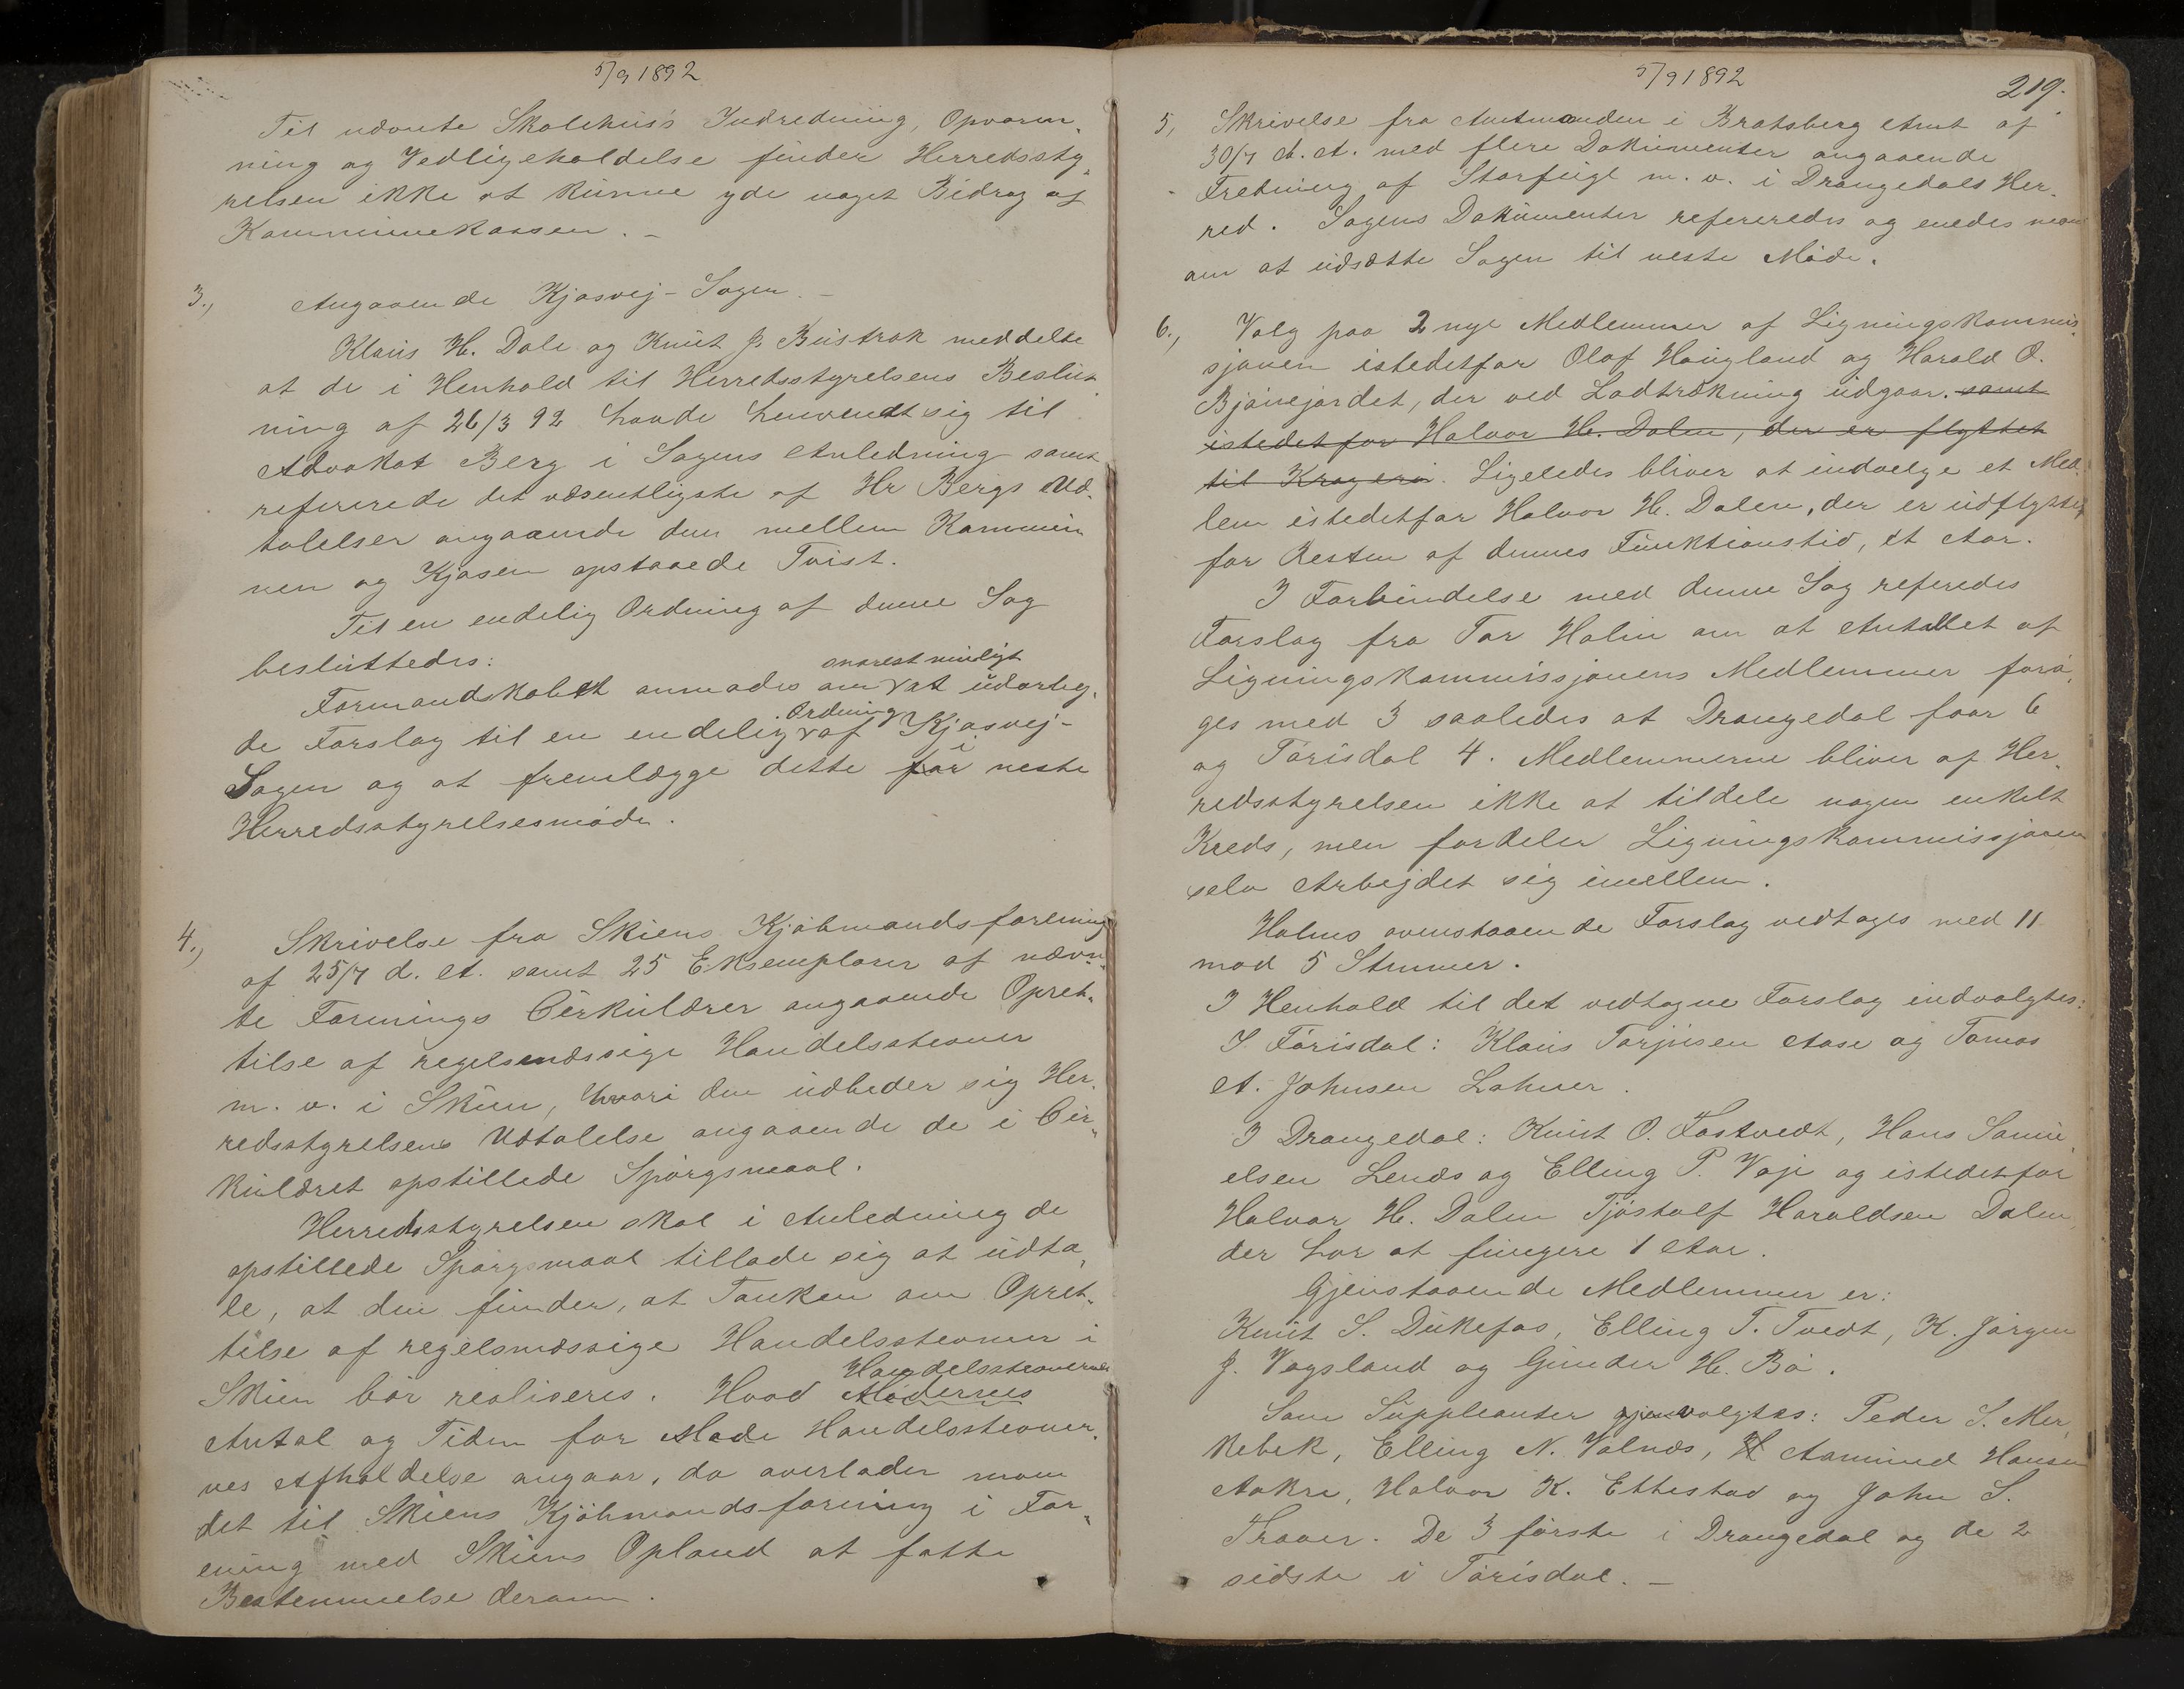 5/9 1892
Til nævnte Skolehus's Indredning, Opvarm-
ning og Vedligeholdelse finder Herredssty-
relsen ikke at kunne yde noget Bidrag af
Kommunekassen. –
3., Angaaende Kjosvej-Sagen. –
Klaus H. Dale og Knut J. Bustrak meddelte
at de i Henhold til Herredsstyrelsens Beslut-
ning af 26/3 92 havde henvendt sig til
Advokat Berg i Sagens Anledning samt
refererede det væsentligste af Hr Bergs Ud-
talelser angaaende den mellem Kommu-
nen og Kjosen opstaaede Tvist.
Til en endelig Ordning af denne Sag
besluttedes:
Formandskabet anmodes om snarest muligt at udarbej-
de Forslag til en endelig Ordning af Kjosvej-
Sagen og at fremlægge dette i neste
Herredsstyrelsesmøde.
4., Skrivelse fra Skiens Kjøbmandsforening
af 25/7 d. A. samt 25 Eksemplarer af nævn-
te Forenings Cirkulærer angaaende Opret-
telse af regelsmæssige Handelsstevner
m. v. i Skien, hvori den udbeder sig Her-
redsstyrelsens Udtalelse angaaende de i Cir-
kulæret opstillede Spørgsmaal.
Herredsstyrelsen skal i Anledning de
opstillede Spørgsmaal tillade sig at udta-
le, at den finder, at Tanken om Opret-
telse af regelsmæssige Handelsstevner i
Skien bør realiseres. Hvad Handelsstevnernes Mødernes
Antal og Tiden for Møde Handelsstevner-
nes Afholdelse angaar, da overlader man
det til Skiens Kjøbmandsforening i For-
ening med Skiens Opland at fatte
Bestemmelse derom.
5/9 1892
219.
5, Skrivelse fra Amtmanden i Bratsberg Amt af
30/7 d. A. med flere Dokumenter angaaende
Fredning af Storfugl m. v. i Drangedals Her-
red. Sagens Dokumenter refereredes og enedes man
om at udsætte Sagen til neste Møde.
6., Valg paa 2 nye Medlemmer af Ligningskommis-
sjonen istedetfor Olaf Haugland og Harald O.
Bjønnjordet, der ved Lodtrækning udgaar. samt
istedetfor Halvor H. Dalen, der er flyttet
til Kragerø. Ligeledes bliver at indvælge et Med-
lem istedetfor Halvor H. Dalen, der er udflyttet
for Resten af dennes Funktionstid, et Aar.
I Forbindelse med denne Sag referedes
Forslag fra Tor Holm om at Antallet af
Ligningskommissjonens Medlemmer forø-
ges med 3 saaledes at Drangedal faar 6
og Tørisdal 4. Medlemmerne bliver af Her-
redsstyrelsen ikke at tildele nogen enkelt
Kreds, men fordeler Ligningskommissjonen
selv Arbejdet sig imellem.
Holms ovenstaaende Forslag vedtages med 11
mod 5 Stemmer.
I Henhold til det vedtagne Forslag indvalgtes:
I Tørisdal: Klaus Torjusen Aase og Tomas
A. Johnsen Lahner.
I Drangedal: Knut O. Fostvedt, Hans Samu-
elsen Lends og Elling P. Voje og istedetfor
Halvor H. Dalen Tjøstolf Haraldsen Dalen,
der har at fungere 1 Aar.
Gjenstaaende Medlemmer er:
Knut S. Dukefos, Elling T. Tvedt, K. Jørgen
J. Vagsland og Gunder H. Bø.
Som Suppleanter gjenvalgtes: Peder S. Mer-
kebek, Elling N. Valnæs, Aamund Hansen
Aakre, Halvor K. Ettestad og John S.
Traaen. De 3 første i Drangedal og de 2
sidste i Tørisdal. –